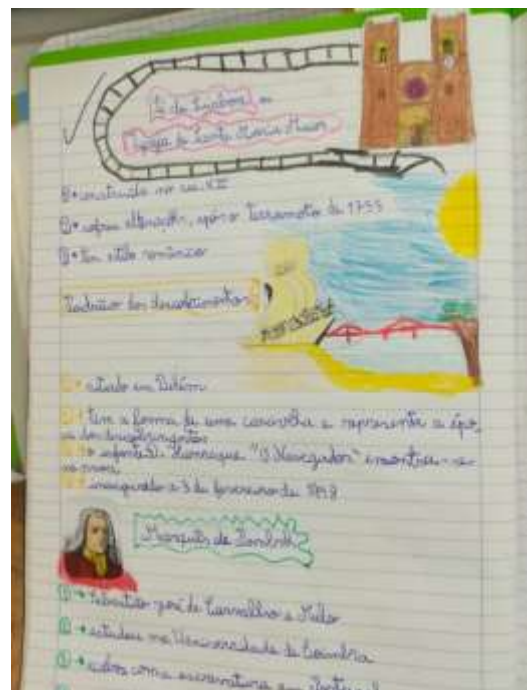 Sé de Lisboa ou
Igreja de Santa Maria Maior
construída no séc. XII
sofreu alterações, após o terramoto de 1755
tem estilo românico
Padrão dos descobrimentos
situado em Belém
tem a forma de uma caravela e representa a épo-
ca dos descobrimentos
o infante D. Henrique "O Navegador" encontra-se
na proa
inaugurado a 3 de fevereiro de
Marquês de Pombal
Sebastião José de Carvalho e Melo
estudou na Universidade de Coimbra
com a escravatura em